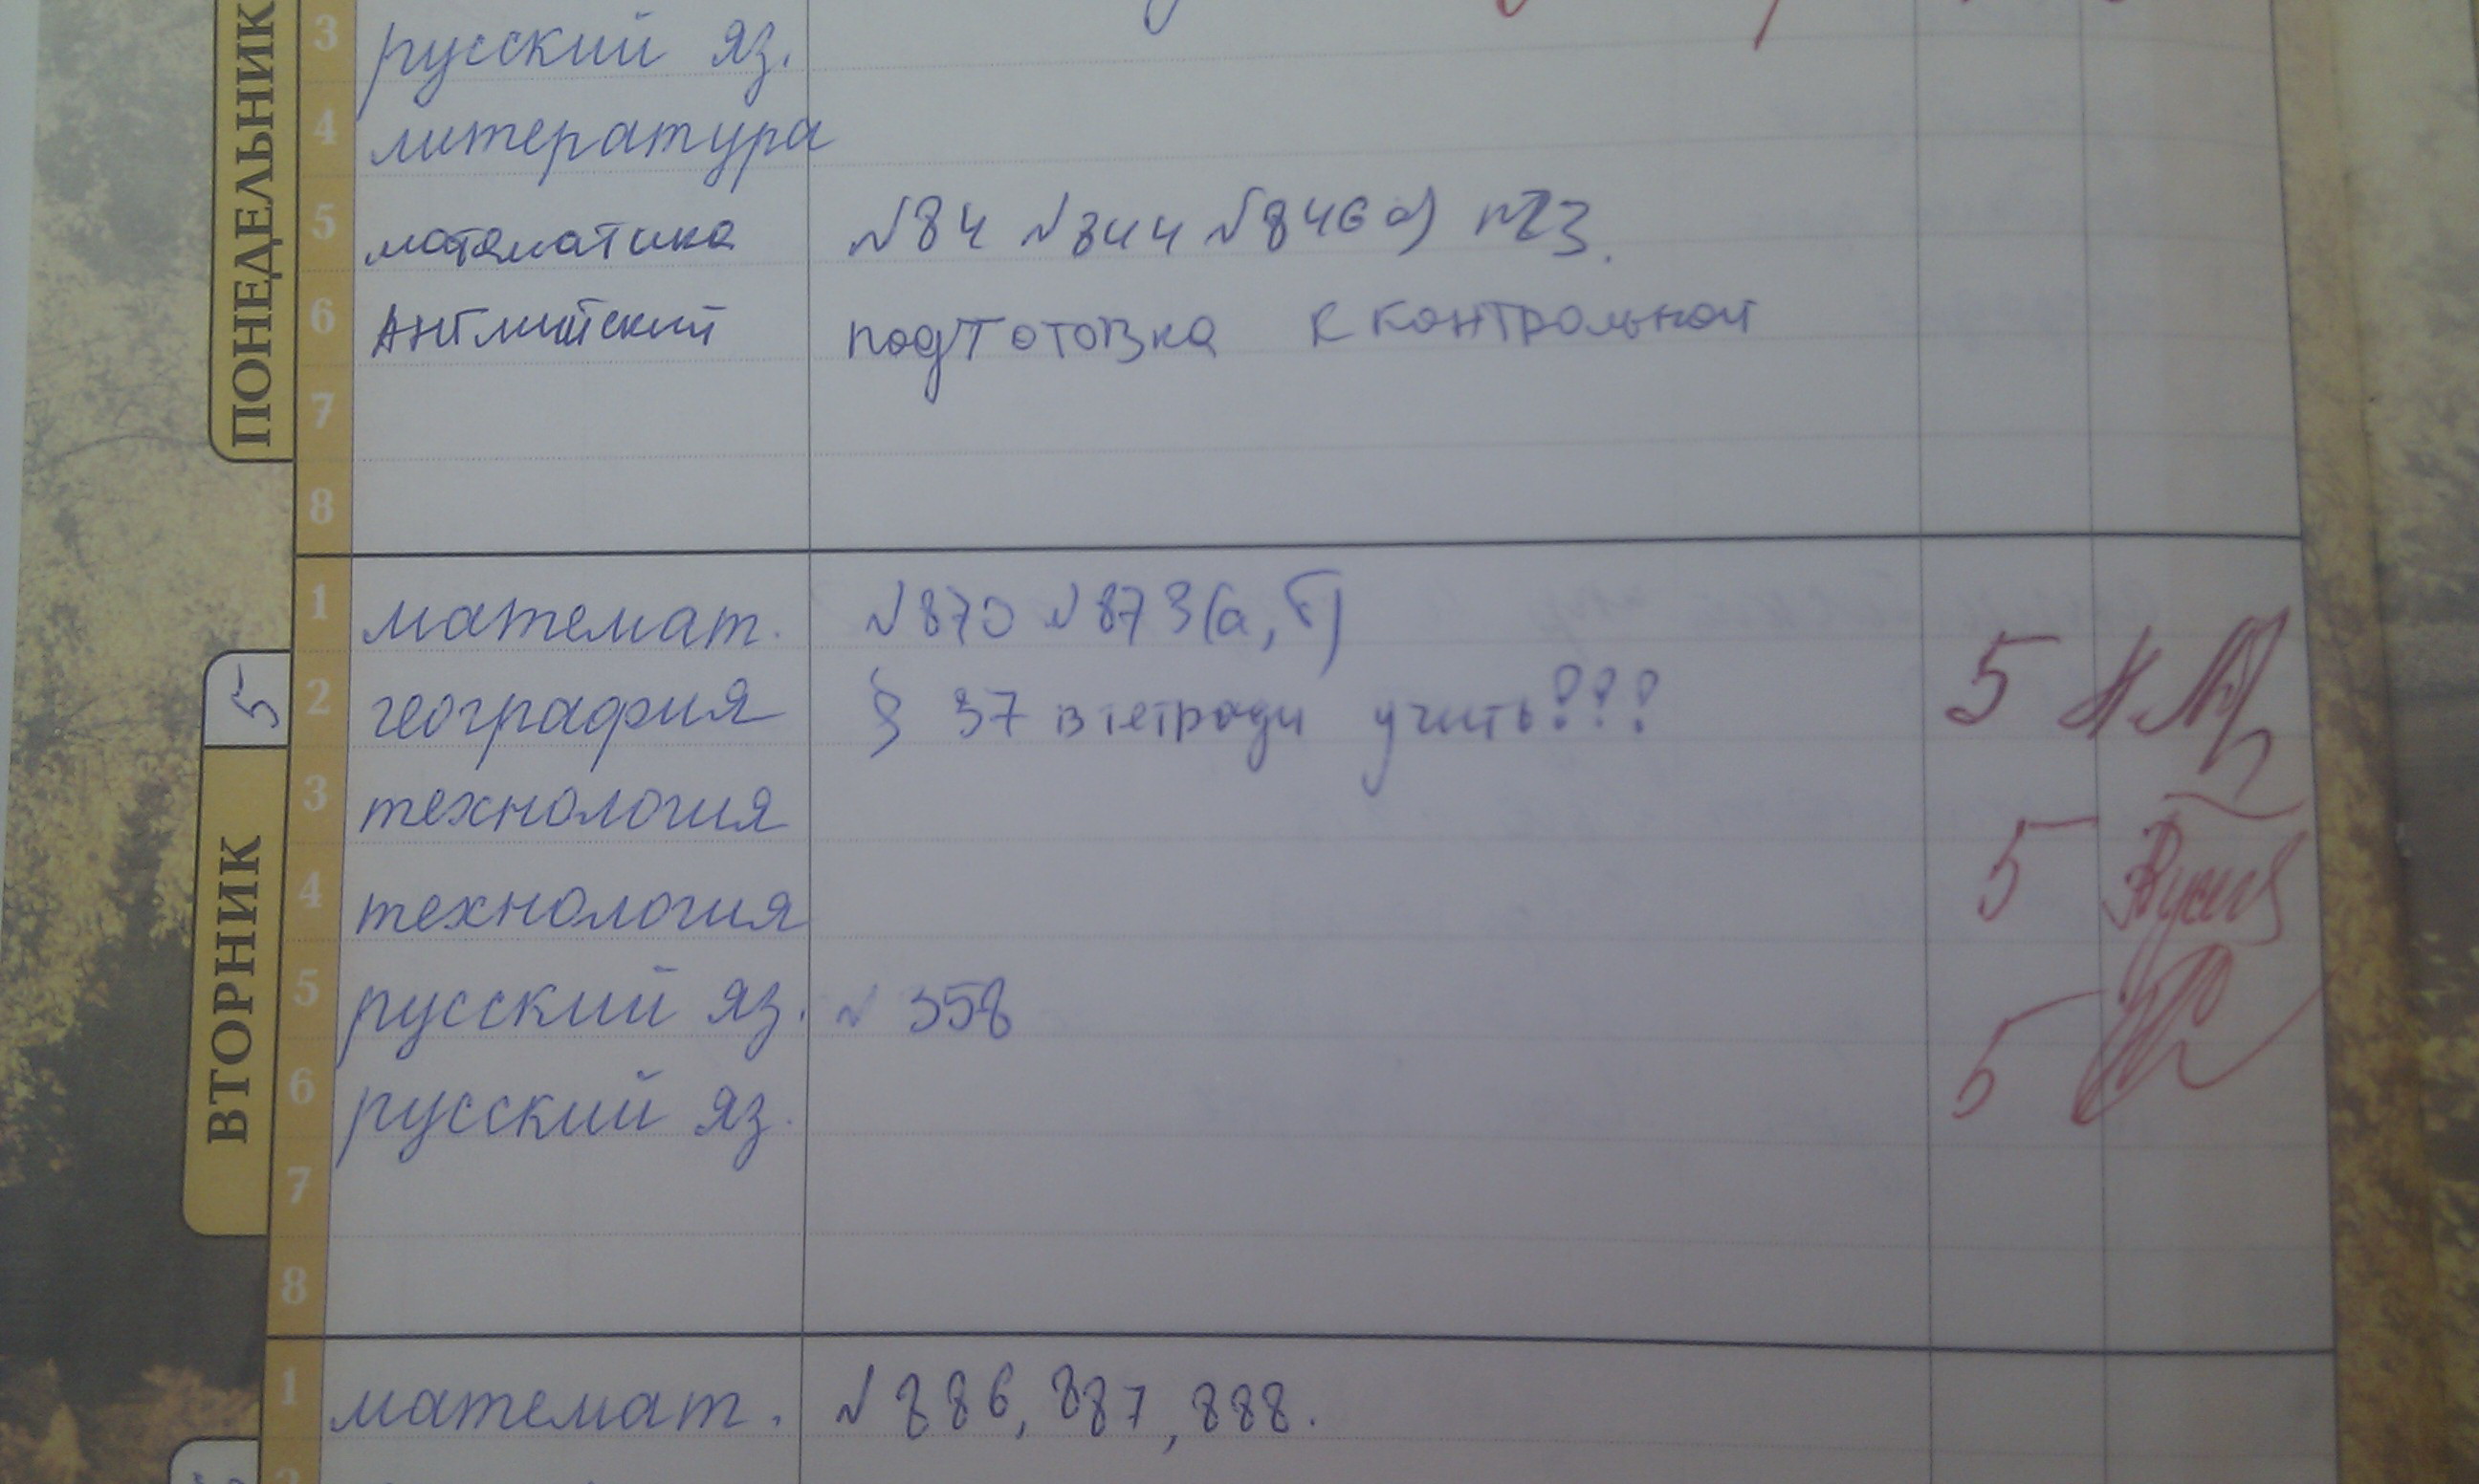 ПОНЕДЕЛЬНИК
3 русский яз.
4 литература
5 математика №84 №844 №846 а)
6 Английский подготовка к контрольной
7
8
ВТОРНИК 5
1 математ. №870 №873(а, б)
2 география § 37 в тетради учить??? 5
3 технология
4 технология 5
5 русский яз. № 358
6 русский яз. 5
7
8
1 математ. №886, 887, 888.